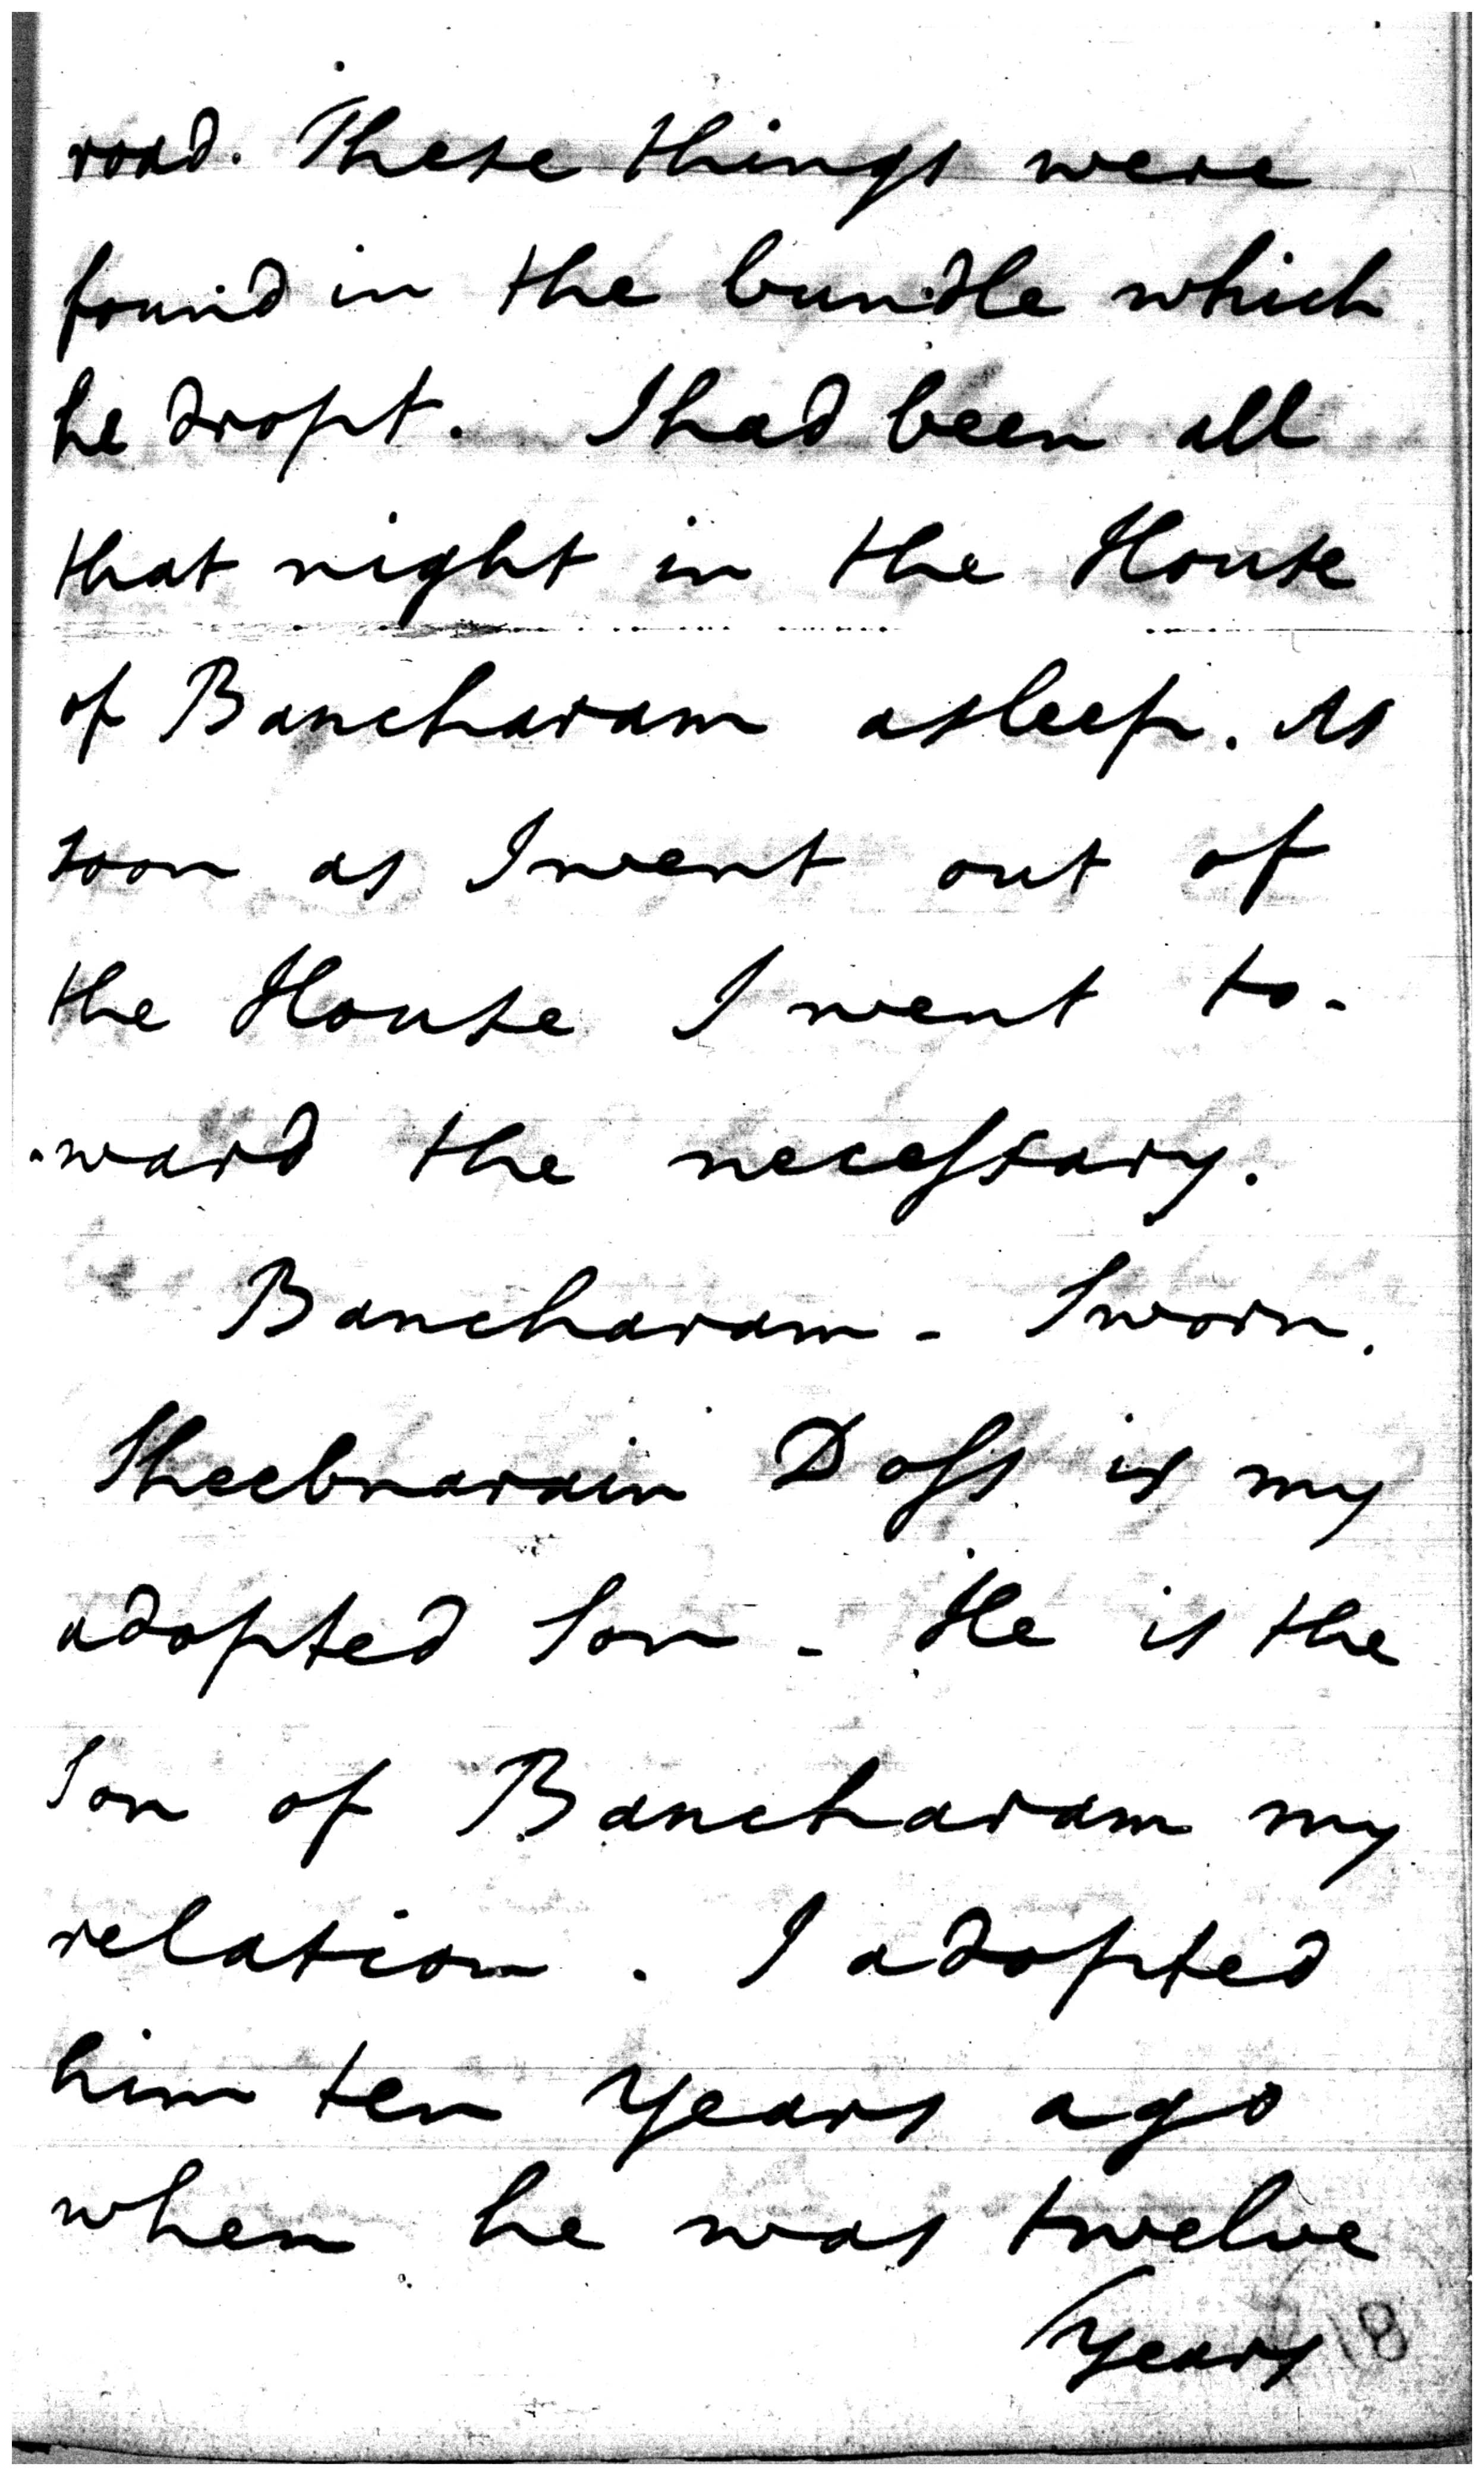 road. These things were
found in the bundle which
he dropt. I had been all
that night in the House
of Bancharam asleep. As
soon as I went out of
the House I went to-
-ward the necessary.
Bancharam - Sworn.
Sheebnarain Doss is my
adopted Son - He is the
Son of Bancharam my
relation. I adopted
him ten years ago
when he was twelve
years